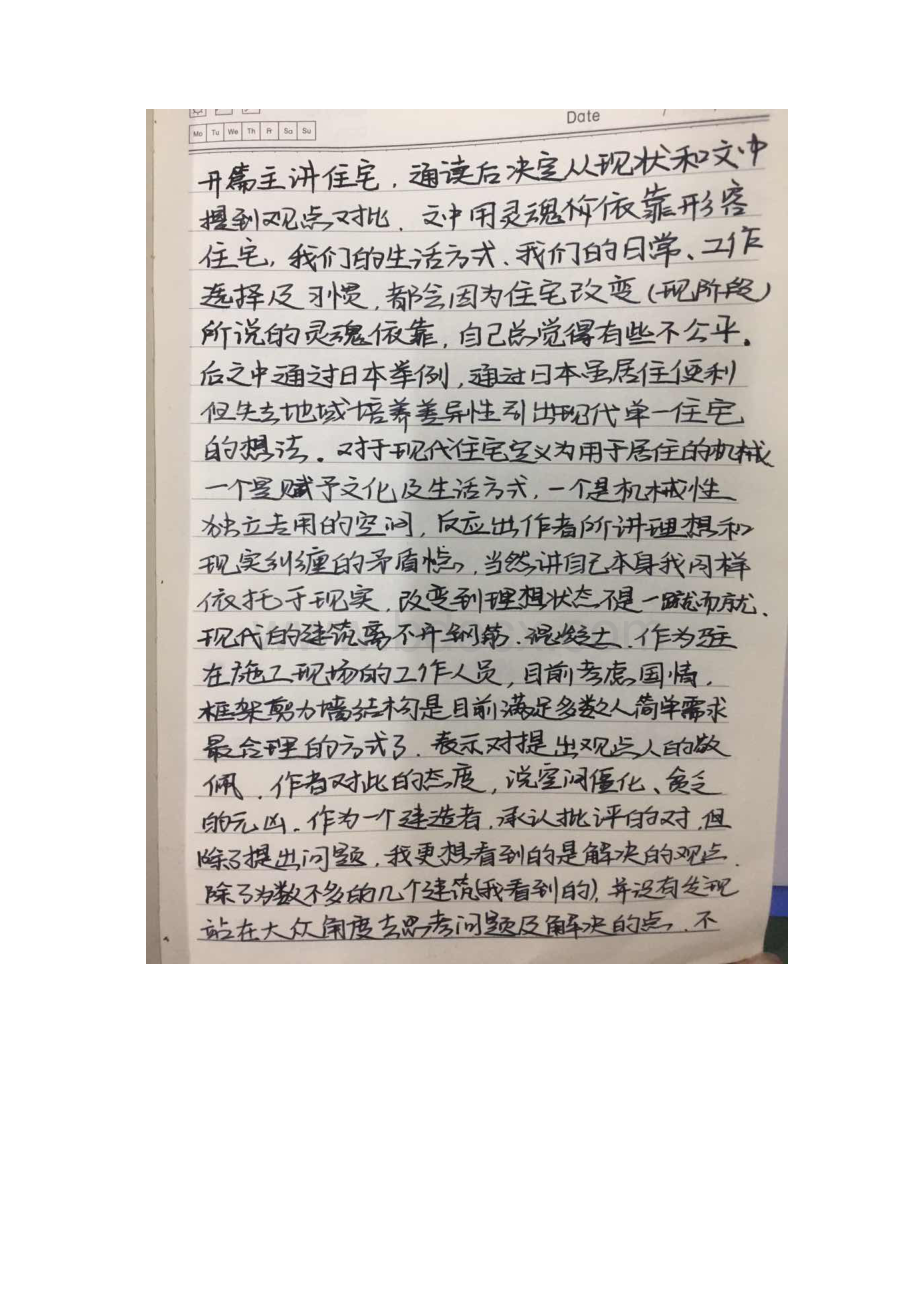 Date /
Mo Tu We Th Fr Sa Su
开篇主讲住宅，通读后决定从现状和文中
提到观点对比．文中用灵魂依靠形容
住宅，我们的生活方式、我们的日常、工作
选择及习惯，都会因为住宅改变(现阶段)
所说的灵魂依靠，自己总觉得有些不公平。
后文中通过日本举例，通过日本虽居住便利
但失去地域培养差异性引出现代单一住宅
的想法。对于现代住宅定义为用于居住的机械
一个是赋予文化及生活方式，一个是机械性
独立专用的空间，反应出作者所讲理想和
现实纠缠的矛盾点，当然讲自己本身我同样
依托于现实，改变到理想状态不是一蹴而就、
现代的建筑离不开钢筋．混凝土．作为驻
在施工现场的工作人员，目前考虑国情，
框架剪力墙结构是目前满足多数人简单需求
最合理的方式了．表示对提出观点人的敬
佩．作者对此的态度，说空间僵化、贫乏
的元凶．作为一个建造者，承认批评的对，但
除了提出问题，我更想看到的是解决的观点．
除了为数不多的几个建筑(我看到的)，并没有发现
站在大众角度去思考问题及解决的点．不